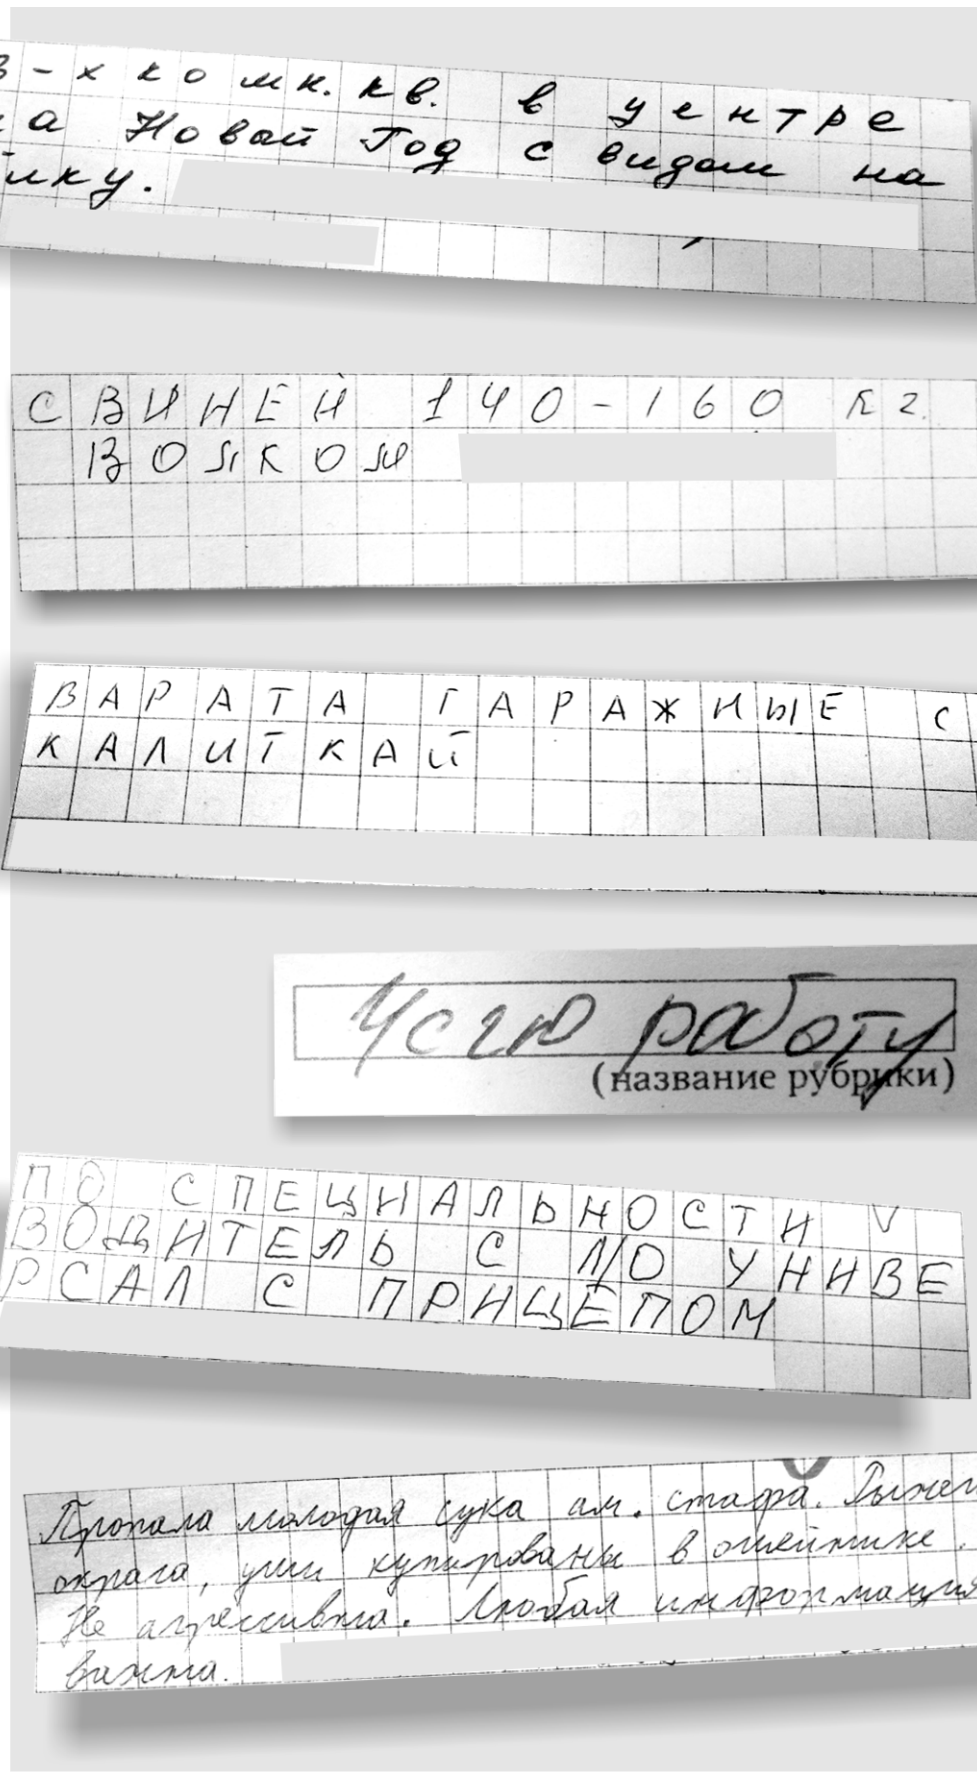 3-х комн. кв. в центре
на Новый Год с видом на
ёлку.
СВИНЕЙ 140-160 кг.
ВОЯКОМ
ВАРАТА ГАРАЖНЫЕ С
КАЛИТКАЙ
Усгю работу
(название рубрики)
ПО СПЕЦИАЛЬНОСТИ V
ВОДИТЕЛЬ С Л/О УНИВЕ
РСАЛ С ПРИЦЕПОМ
Пропала молодая сука ам. стафа. Рыжего
окраса, уши купированы в ошейнике.
Не агрессивна. Любая информация
важна.